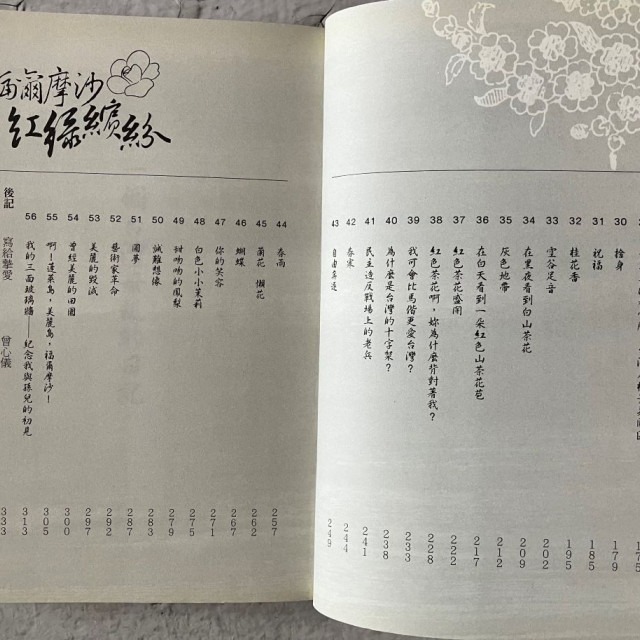 175
30 捨身 179
31 祝福 185
32 桂花香 195
33 空谷足音 202
34 在黑夜看到白山茶花 209
35 灰色地帶 212
36 在白天看到一朵紅色山茶花苞 217
37 紅色茶花盛開 222
38 紅色茶花啊,妳為什麼背對著我? 228
39 我可會比馬偕更愛台灣? 233
40 為什麼是台灣的十字架? 238
41 民主造反戰場上的老兵 241
42 春寒 244
43 自由靠近 249
爾摩沙
紅綠繽紛
44 春雨 257
45 蘭花 懶花 262
46 蝴蝶 267
47 你的笑容 271
48 白色小小茉莉 275
49 甜吻吻的鳳梨 279
50 誠難想像 283
51 圓夢 287
52 藝術家革命 292
53 美麗的毀滅 297
54 曾經美麗的田園 300
55 啊!蓬萊島,美麗島,福爾摩沙! 305
56 我的三面玻璃牆——紀念我與孫兒的初見 313
後記 寫給摯愛 曾心儀 333